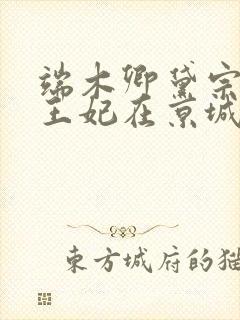 端木卿黛宗
王妃在京城
東方城府的猫